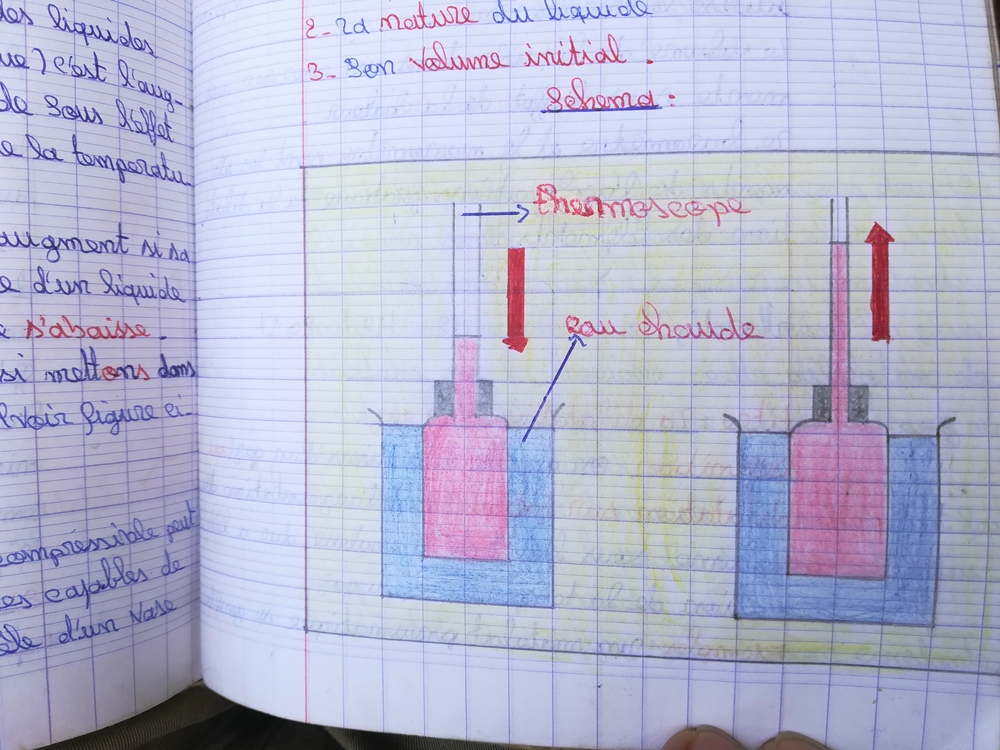 des liquides
ue) c'est l'aug-
de sous l'effet
e la temperatu
augment si sa
e d'un liquide
e s'abaisse.
si mettons dans
(voir figure ci-
compressible peut
es capables de
d'un vase
2- la nature du liquide
3- son volume initial.
Schema:
thermoscope
eau chaude